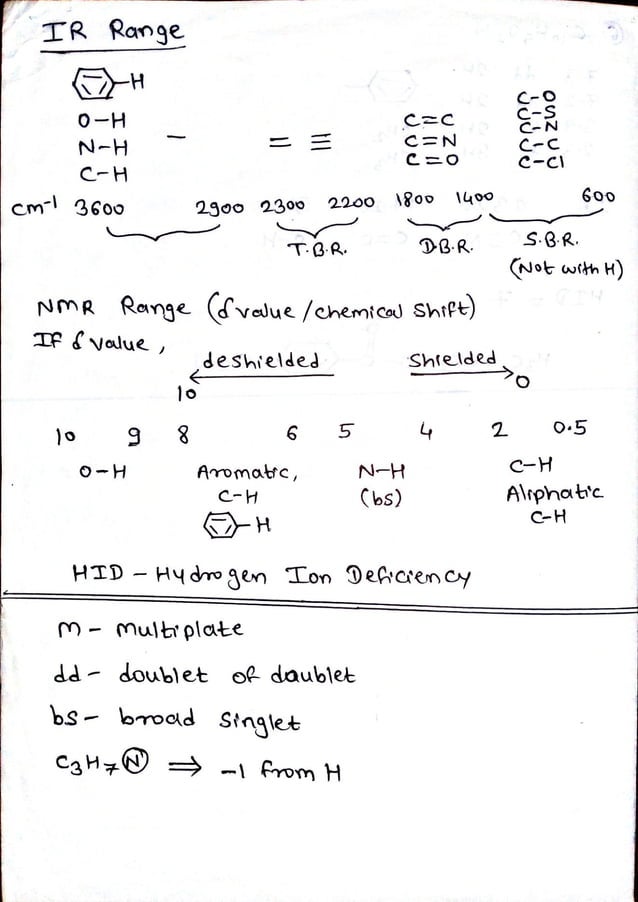 IR Range
H
O-H
N-H
C-H
— = ≡
C=C
C=N
C=O
C-O
C-S
C-N
C-C
C-Cl
cm-1 3600 2900 2300 2200 1800 1400 600
T.B.R. D.B.R. S.B.R.
(Not with H)
NMR Range (δ value/chemical shift)
If δ value,
deshielded Shielded
10 0
10 9 8 6 5 4 2 0.5
O-H
Aromatic,
C-H
H
N-H
(bs)
C-H
Aliphatic
C-H
HID - Hydrogen Ion Deficiency
m - multiplate
dd - doublet of daublet
bs - broad singlet
C3H7N ⇒ -1 from H